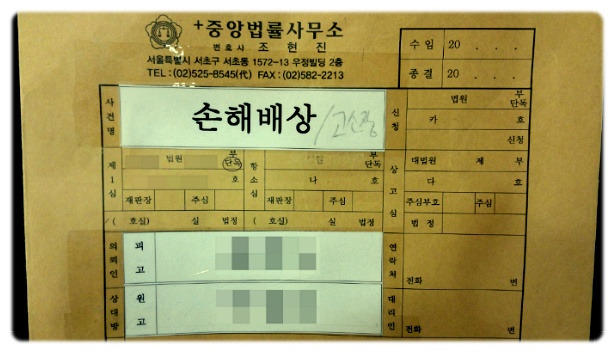 +중앙법률사무소
변호사 조현진
서울특별시 서초구 서초동 1572-13 우정빌딩 2층
TEL:(02)525-8545(代) FAX:(02)582-2213
수임 20 . . .
종결 20 . . .
사건명 손해배상 /고소장
신청 법원 부 단독
카 호
신청
제1심 법원 부 단독
호
재판장 주심
/( 호실) 실 법정
항소심 부 단독
나 호
재판장 주심
( 호실) 실 법정
상고심 대법원 제 부
다 호
주심부호 주심
법정
의뢰인 피고
연락처
전화 번
상대방 원고
대리인
전화 번